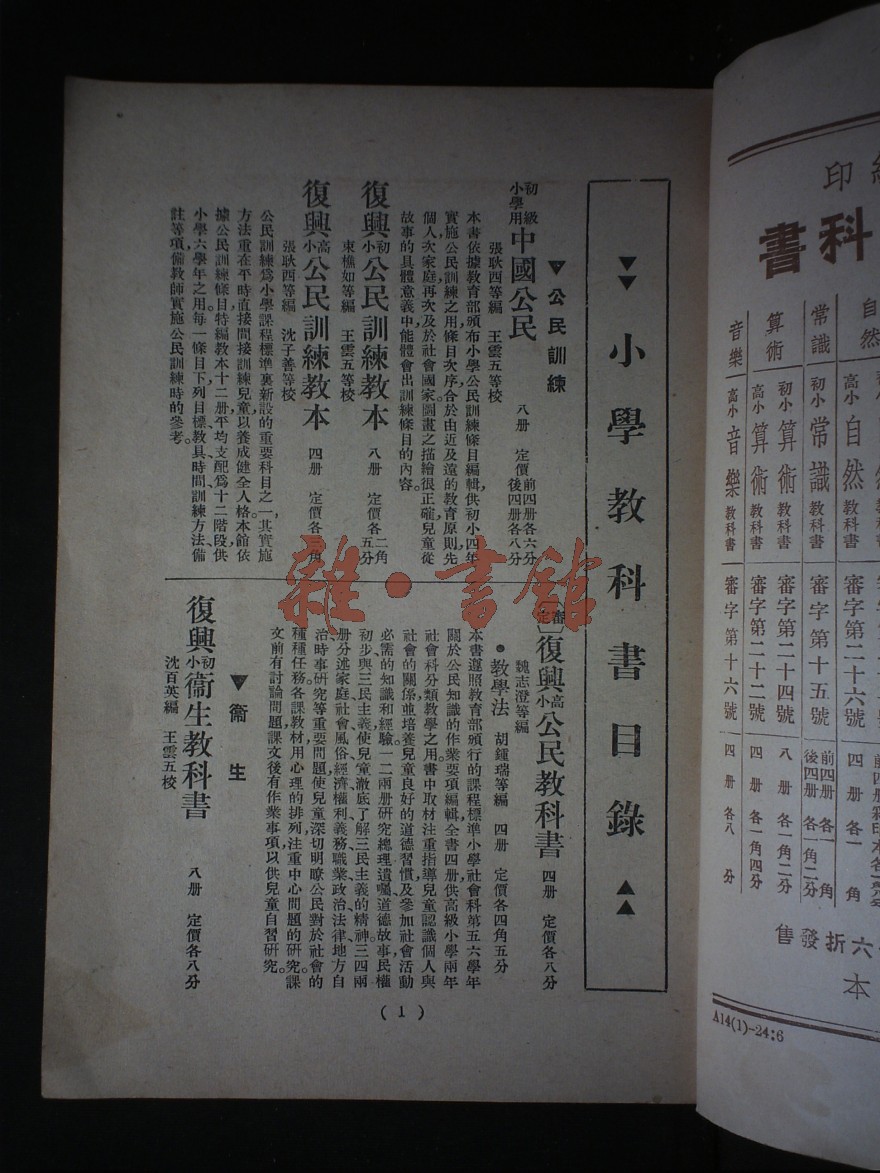 小學教科書目錄
公民訓練
初級小學用 中國公民 八册 定價前四册各六分後四册各八分
張耿西等編 王雲五等校
本書依據教育部頒布小學公民訓練條目編輯,供初小四年
實施公民訓練之用,條目次序,合於由近及遠的教育原則,先
個人,次家庭,再次及於社會國家。圖畫之描繪很正確,兒童從
故事的具體意義中能體會出訓練條目的內容。
復興初小公民訓練教本 八册 定價各二角五分
束樵如等編 王雲五等校
復興高小公民訓練教本 四册 定價各三角
張耿西等編 沈子善等校
公民訓練爲小學課程標準裏新設的重要科目之一,其實施
方法重在平時直接間接訓練兒童以養成健全人格。本館依
據公民訓練條目特編教本十二册,平均支配爲十二階段,供
小學六學年之用。每一條目下列目標、教具、時間、訓練方法、備
註等項,備教師實施公民訓練時的參考。
審定 復興高小公民教科書 四册 定價各八分
魏志澄等編
•教學法 胡鍾瑞等編 四册 定價各四角五分
本書遵照教育部頒行的課程標準小學社會科第五六學年
關於公民知識的作業要項編輯,全書四册,供高級小學兩年
社會科分類教學之用。書中取材注重指導兒童認識個人與
社會的關係,並培養兒童良好的道德習慣及參加社會活動
必需的知識和經驗。一二兩册研究總理遺囑、道德故事、民權
初步與三民主義,使兒童澈底了解三民主義的精神;三四兩
册分述家庭、社會、風俗、經濟、權利義務、職業、政治、法律、地方自
治、時事研究等重要問題,使兒童深切明瞭公民對於社會的
種種任務。各課教材用心理的排列,注重中心問題的研究。課
文前有討論問題,課文後有作業事項,以供兒童自習研究。
衞生
復興初小衞生教科書 八册 定價各八分
沈百英編 王雲五校
(1)
雜·書館
印
科書
自然
高小自然教科書 審字第二十六號 四册 各一角
常識 初小常識教科書 審字第十五號 前四册各一角 後四册各一角二分
算術 初小算術教科書 審字第二十四號 八册 各一角二分
高小算術教科書 審字第二十二號 四册 各一角四分
音樂 高小音樂教科書 審字第十六號 四册 各八分
六折發售
本
A14(1)-24:6